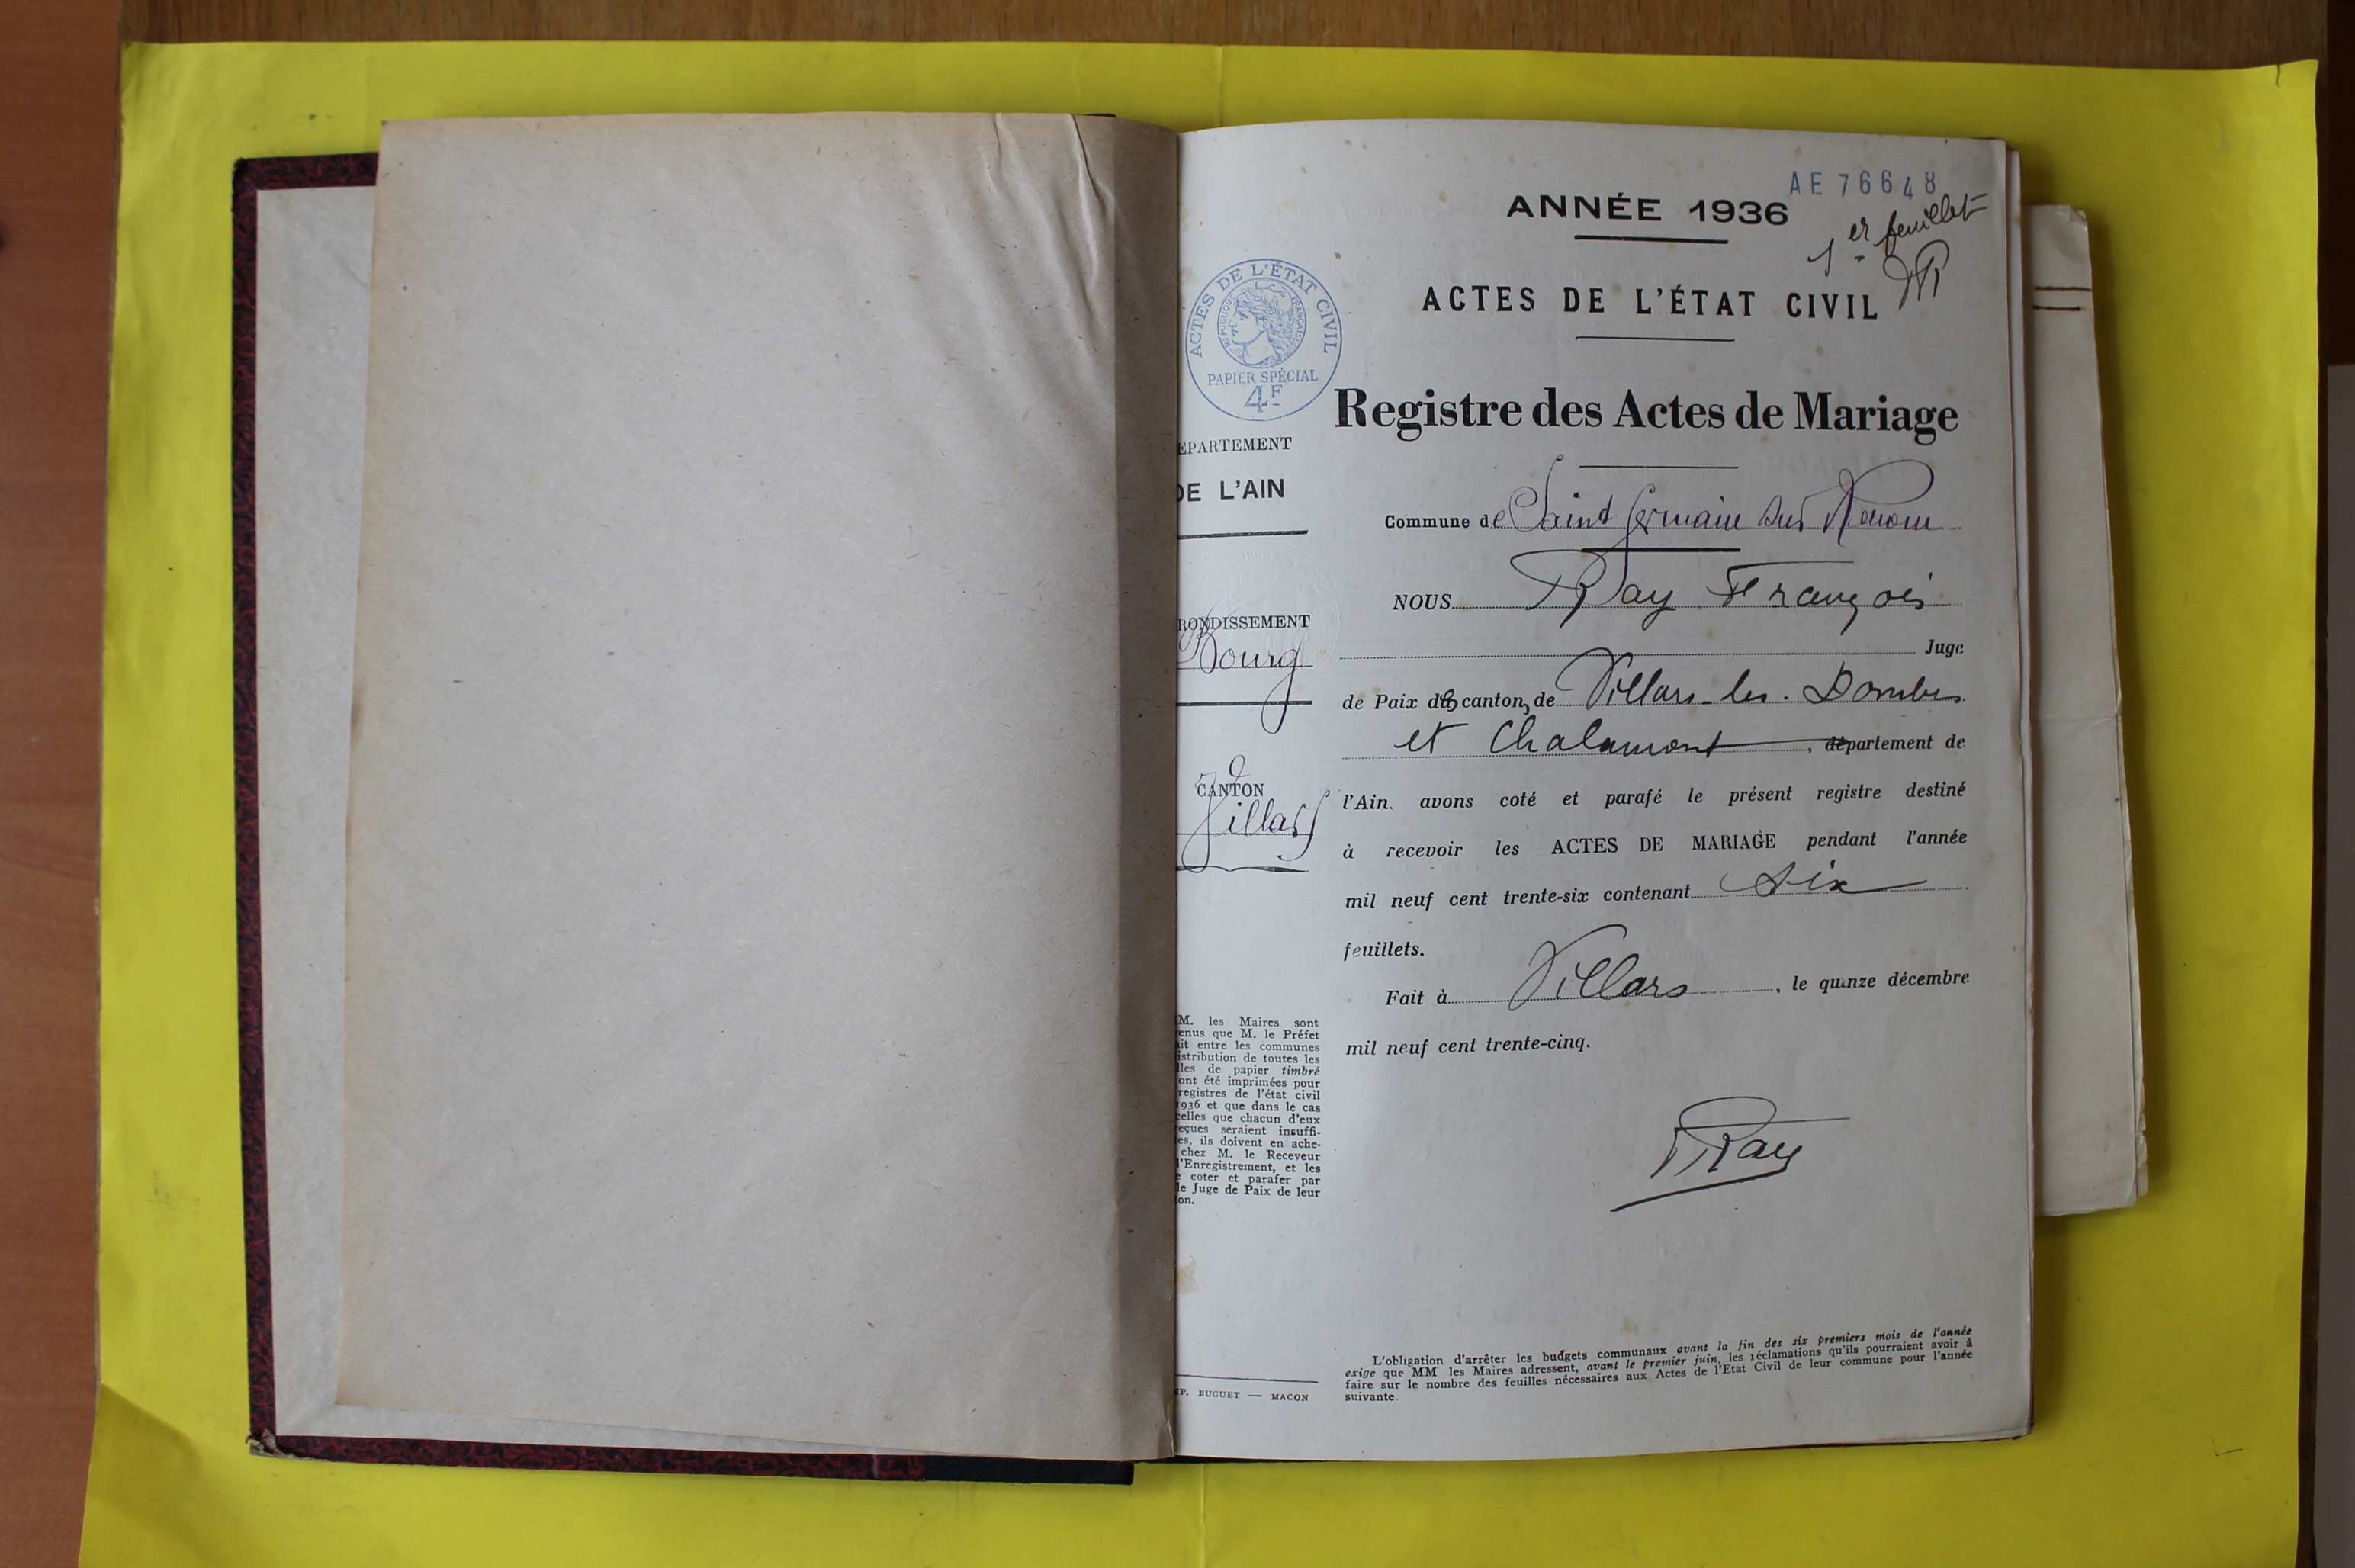 AE 76648
ANNÉE 1936
1er feuillet
ACTES DE L'ÉTAT CIVIL
ACTES DE L'ÉTAT CIVIL
RÉPUBLIQUE FRANÇAISE
PAPIER SPÉCIAL
4F
Registre des Actes de Mariage
EPARTEMENT
DE L'AIN
Commune de Saint Germain sur Renom
RONDISSEMENT
Bourg
CANTON
Villars
NOUS Ray François
Juge
de Paix des cantons de Villars-les-Dombes
et Chalamont, département de
l'Ain. avons coté et parafé le présent registre destiné
à recevoir les ACTES DE MARIAGE pendant l'année
mil neuf cent trente-six contenant six
feuillets.
Fait à Villars, le quinze décembre
mil neuf cent trente-cinq.
Ray
M. les Maires sont
enus que M. le Préfet
ait entre les communes
istribution de toutes les
lles de papier timbré
ont été imprimées pour
registres de l'état civil
1936 et que dans le cas
celles que chacun d'eux
reçues seraient insuffi-
es, ils doivent en ache-
chez M. le Receveur
l'Enregistrement, et les
e coter et parafer par
le Juge de Paix de leur
on.
MP. BUGUET — MACON
L'obligation d'arrêter les budgets communaux avant la fin des six premiers mois de l'année
exige que MM les Maires adressent, avant le premier juin, les réclamations qu'ils pourraient avoir à
faire sur le nombre des feuilles nécessaires aux Actes de l'Etat Civil de leur commune pour l'année
suivante.